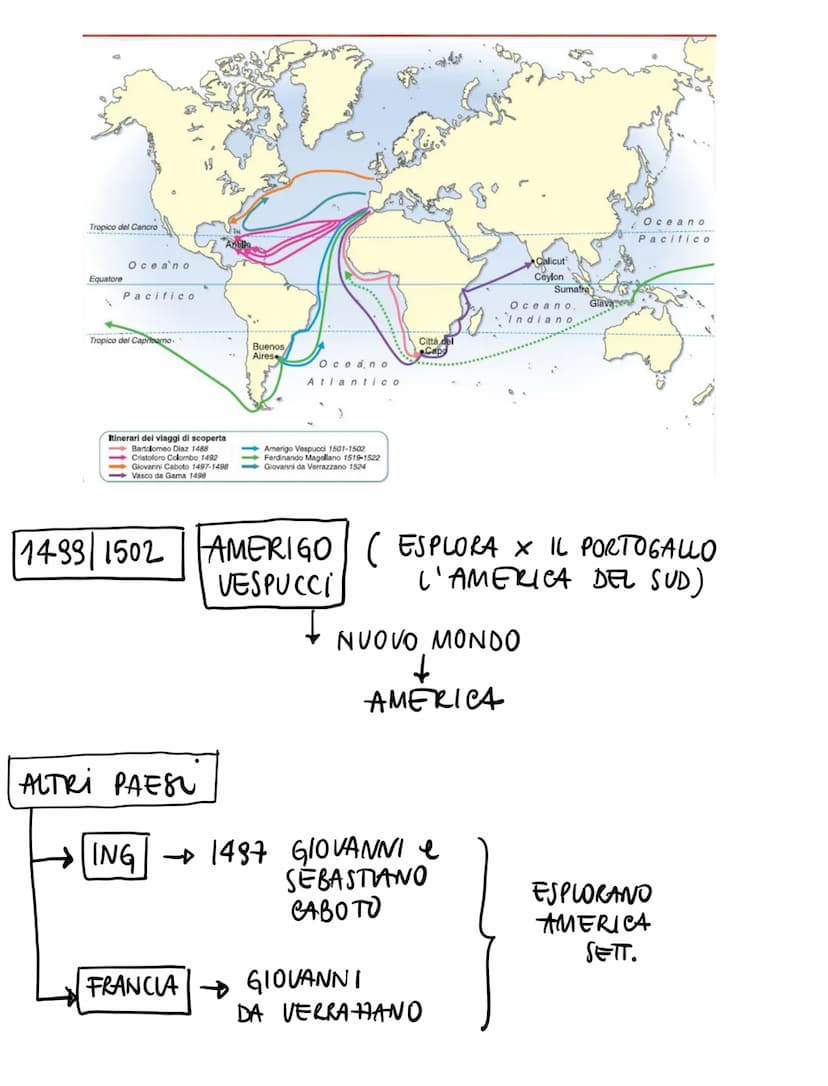 Tropico del Cancro
Antille
Oceano
Pacifico
Equatore
Oceano
Pacifico
Calicut
Ceylon
Sumatra
Giava
Oceano
Indiano
Tropico del Capricorno
Buenos
Aires
Città del
Capo
Oceano
Atlantico
Itinerari dei viaggi di scoperta
Bartolomeo Diaz 1488
Cristoforo Colombo 1492
Giovanni Caboto 1497-1498
Vasco da Gama 1498
Amerigo Vespucci 1501-1502
Ferdinando Magellano 1519-1522
Giovanni da Verrazzano 1524
1499/1502 AMERIGO VESPUCCI ( ESPLORA x IL PORTOGALLO
L'AMERICA DEL SUD)
↓ NUOVO MONDO
↓
AMERICA
ALTRI PAESI
→ ING → 1497 GIOVANNI e
SEBASTIANO
CABOTO
ESPLORANO
AMERICA
SETT.
→ FRANCIA → GIOVANNI
DA VERRAZZANO